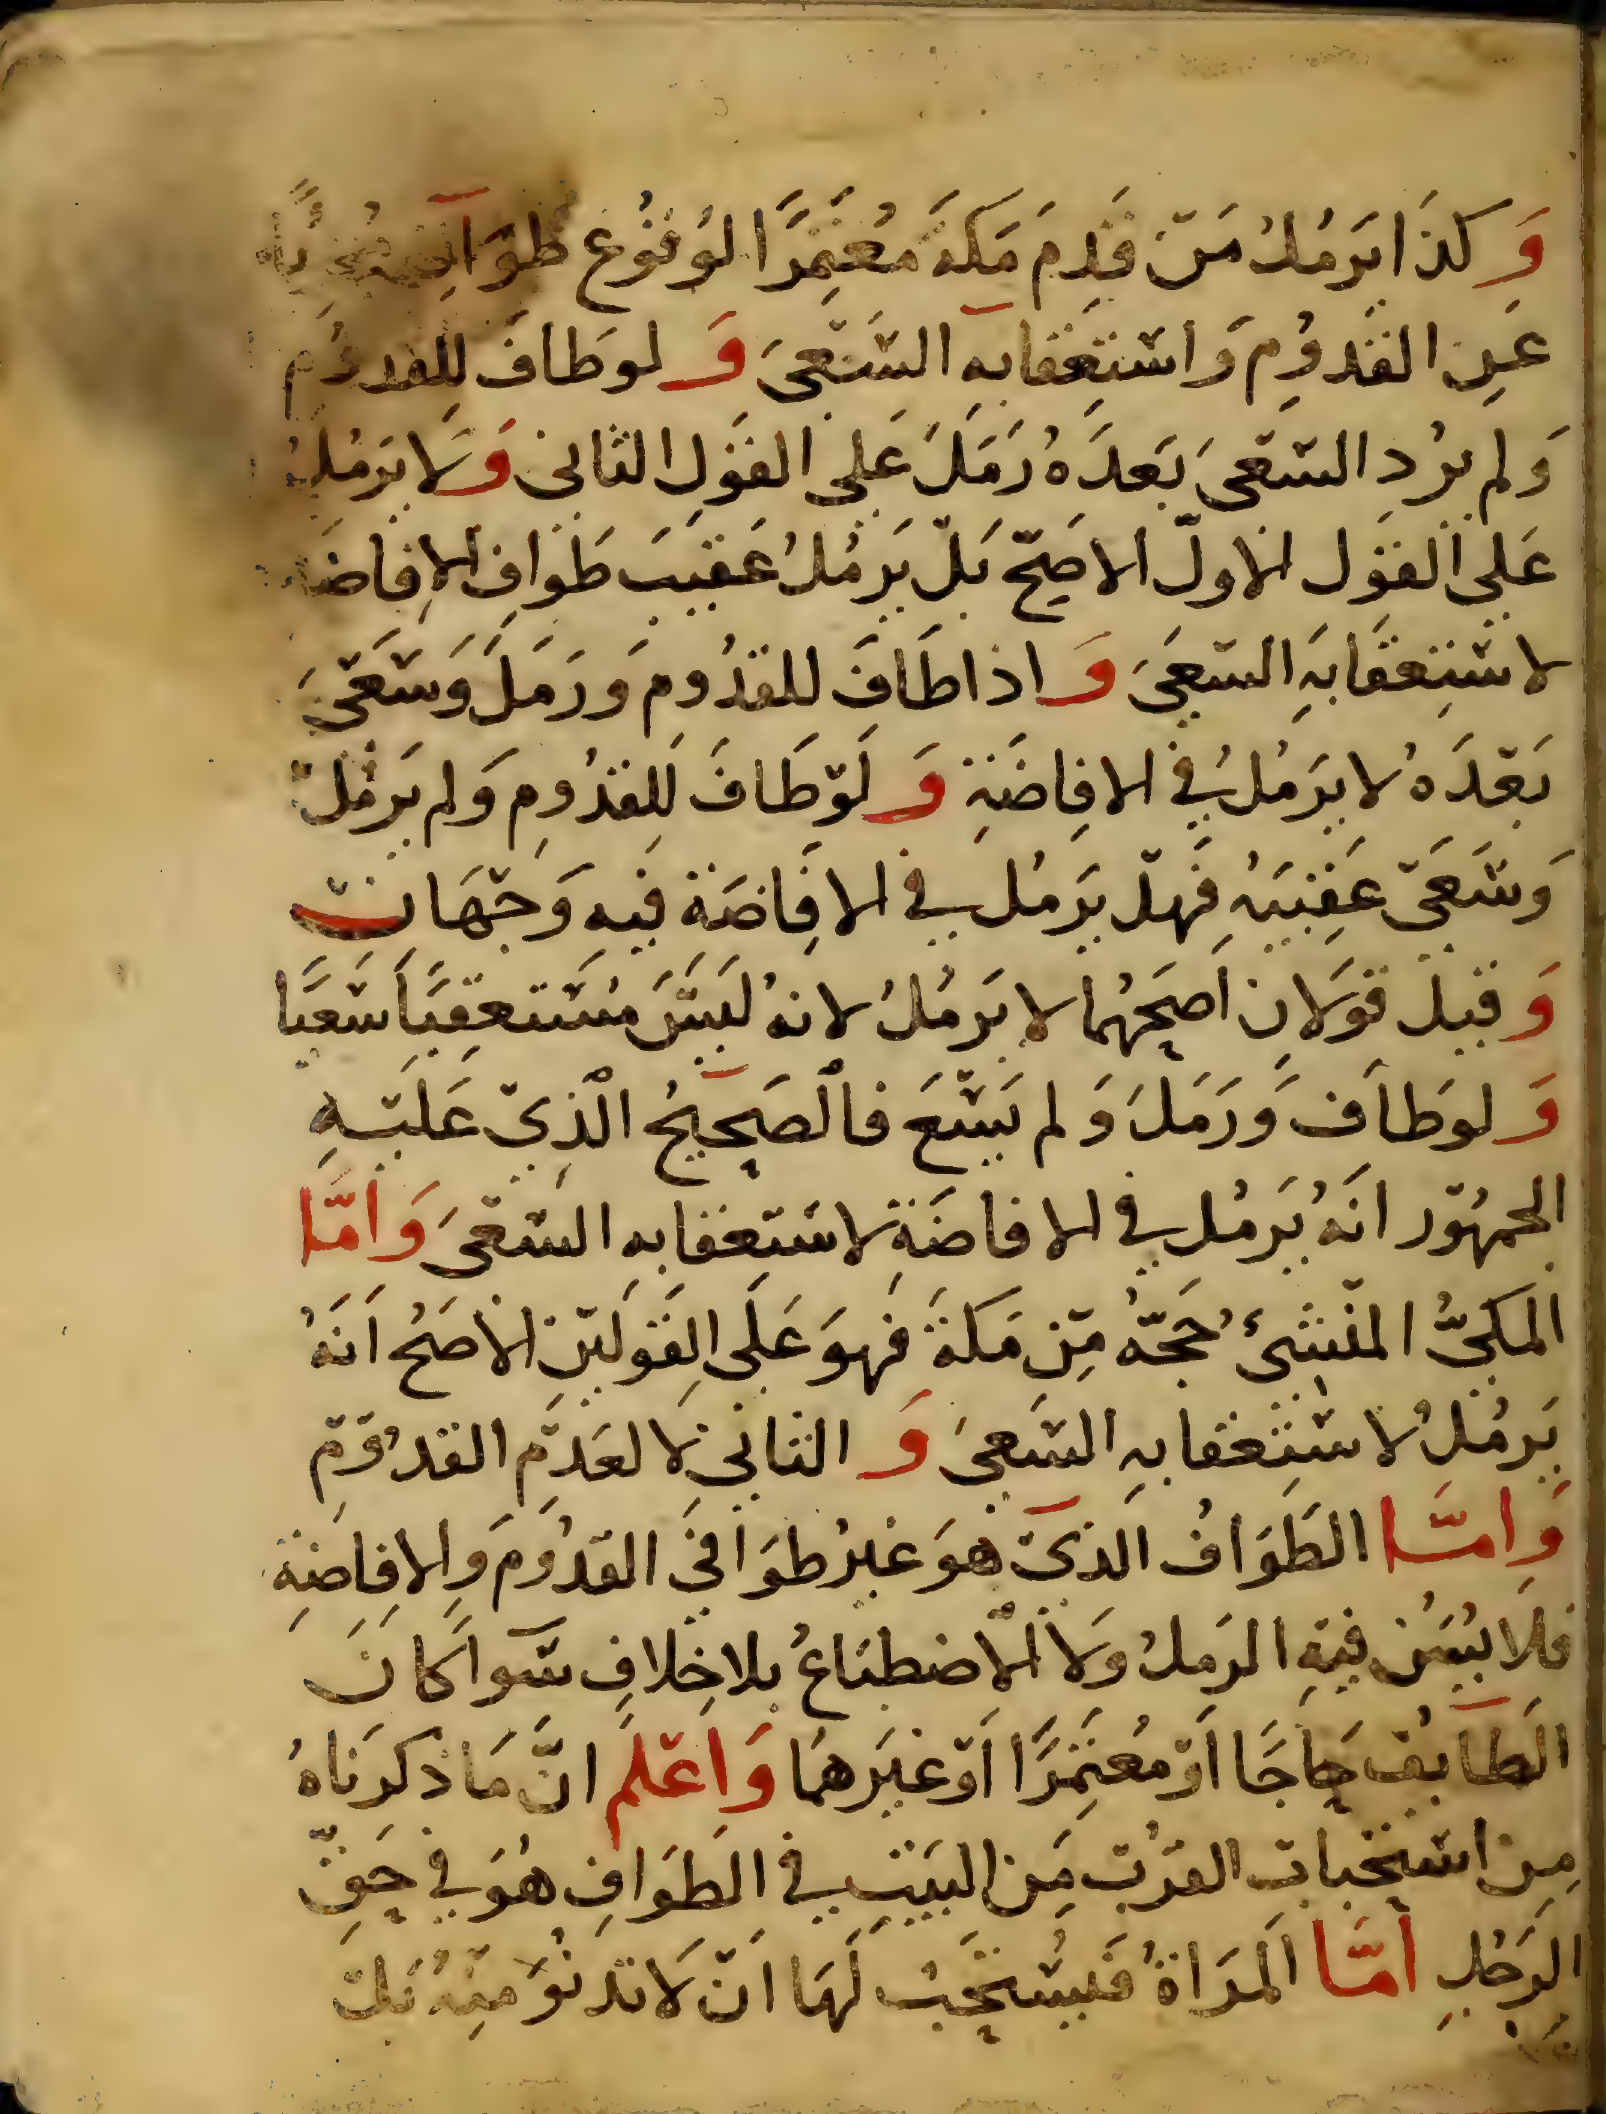 وَكذَا يَرمُلُ مَنْ قَدِمَ مَكةَ مُعْتَمِرًا لوُقُوع طوَافِهِ مُجْزِيًا
عَنِ القُدوُمِ وَاسْتِعقَابه السَّعْىَ وَلوطافَ للقدوُم
وَلم يُرِد السَّعْىَ بَعدَهُ رَمَلَ عَلى القَوْلِ الثانى وَلَا يَرمُلُ
عَلى القَوْل الاولّ الاصَحّ بَلْ يَرمُلُ عَقيبَ طَوَافِ الإفاضَة
لاسْتِعقَابهِ السَّعىَ وَاذا طَافَ للقدُومِ وَرَمَلَ وَسَعَىَ
بَعْدَهُ لا يَرمُلُ في الافِاضَةِ وَلَوْ طَافَ لِلقدُومِ وَلم يَرمُلْ
وَسَعَىْ عَقِيبَهُ فَهلْ يَرمُل في الافِاضَة فيهِ وَجْهَانْ
وَقيلَ قوَلانِ اَصَحّهُما لا يَرمُلُ لانهُ لَيْسَ مُسْتعقِبًا سَعيًا
وَلوطافَ وَرَمَلَ وَلم يَسْعَ فالصَحِيحُ الّذِىْ عَلَيْهِ
الجمهُوْر انَهُ يَرمُل في الافاضَة لاسْتِعقابهِ السَّعْىَ وَامَّا
المَكىُّ المنْشىُٔ حَجّهُ مِنْ مَكةَ فَهوَ عَلَى القَولَيْنِ الاصَحُ اَنَهُ
يَرمُلُ لاسْتِعقابهِ السَّعىَ وَالثانى لَا لعَدَم القدُوْمِ
وَامَّا الطَوَافُ الذىْ هوَ غيرُ طوَافىَ القدُومِ وَالافِاضَةِ
فلا يُسَنُ فيهِ الرَملُ وَلا الاضطبَاعُ بلا خِلافٍ سَوا كانَ
الطَايفُ حَاجًا اَوْ مُعتَمِرًا اَوْ غيَرهمَا وَاعْلَم انَّ مَا ذكرَناهُ
مِن استحْبابِ القرْبِ مِنَ البَيتِ في الطَوَافِ هُوَ في حَقّ
الرَجُلِ اَمَّا المَرَاةُ فَيُسْتَحَبُ لَهَا اَنْ لَا تدنُوَ مِنْهُ بَلْ